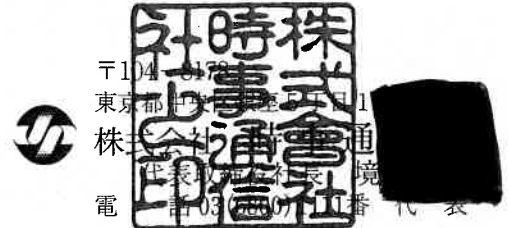 株式會社
時事通信
社之印
〒104-8178
東京都中央区銀座5丁目1
株式会社 時事通
代表取締役社長 境
電 話 03(6800)1111番 代 表